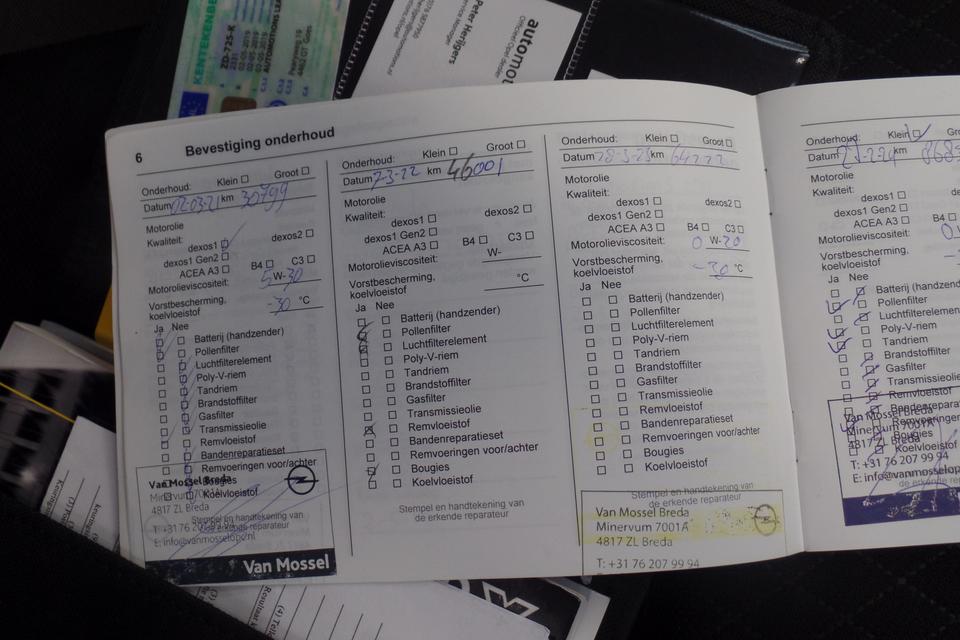 KENTEKENBEWIJS
ZD-725-K
2331
02-05-2019
02-05-2019
02-05-2019
AUTOMOTIONS LEA
C.1.1
C.1.2
C.1.3
C.4
4462 GT Goes
automot
Officieel Opel dealer
Peter Herijgers
Service Manager
6
Bevestiging onderhoud
Onderhoud: Klein Groot
Datum 02-03-21 km 30799
Motorolie
Kwaliteit:
dexos1 dexos2
dexos1 Gen2
ACEA A3 B4 C3
Motorolieviscositeit: 5 W-30
Vorstbescherming,
koelvloeistof -30 °C
Ja Nee
Batterij (handzender)
Pollenfilter
Luchtfilterelement
Poly-V-riem
Tandriem
Brandstoffilter
Gasfilter
Transmissieolie
Remvloeistof
Bandenreparatieset
Remvoeringen voor/achter
Bougies
Koelvloeistof
Stempel en handtekening van
de erkende reparateur
Van Mossel Breda
Minervum 7001A
4817 ZL Breda
E: info@vanmosselopel.nl
Van Mossel
Onderhoud: Klein Groot
Datum 2-3-22 km 46001
Motorolie
Kwaliteit:
dexos1 dexos2
dexos1 Gen2
ACEA A3 B4 C3
Motorolieviscositeit: W-
Vorstbescherming,
koelvloeistof °C
Ja Nee
Batterij (handzender)
Pollenfilter
Luchtfilterelement
Poly-V-riem
Tandriem
Brandstoffilter
Gasfilter
Transmissieolie
Remvloeistof
Bandenreparatieset
Remvoeringen voor/achter
Bougies
Koelvloeistof
Stempel en handtekening van
de erkende reparateur
Onderhoud: Klein Groot
Datum 28-3-23 km
Motorolie
Kwaliteit:
dexos1 dexos2
dexos1 Gen2
ACEA A3 B4 C3
Motorolieviscositeit: 0 W-20
Vorstbescherming,
koelvloeistof -30 °C
Ja Nee
Batterij (handzender)
Pollenfilter
Luchtfilterelement
Poly-V-riem
Tandriem
Brandstoffilter
Gasfilter
Transmissieolie
Remvloeistof
Bandenreparatieset
Remvoeringen voor/achter
Bougies
Koelvloeistof
Stempel en handtekening van
de erkende reparateur
Van Mossel Breda
Minervum 7001A
4817 ZL Breda
T: +31 76 207 99 94
Onderhoud: Klein Groot
Datum km
Motorolie
Kwaliteit:
dexos1
dexos1 Gen2
ACEA A3 B4
Motorolieviscositeit: 0
Vorstbescherming,
koelvloeistof
Ja Nee
Batterij (handzender)
Pollenfilter
Luchtfilterelement
Poly-V-riem
Tandriem
Brandstoffilter
Gasfilter
Transmissieolie
Remvloeistof
Bandenreparatie
Remvoeringen
Bougies
Koelvloeistof
Van Mossel Breda
Minervum 7001A
4817 ZL Breda
T: +31 76 207 99 94
E: info@vanmosselop